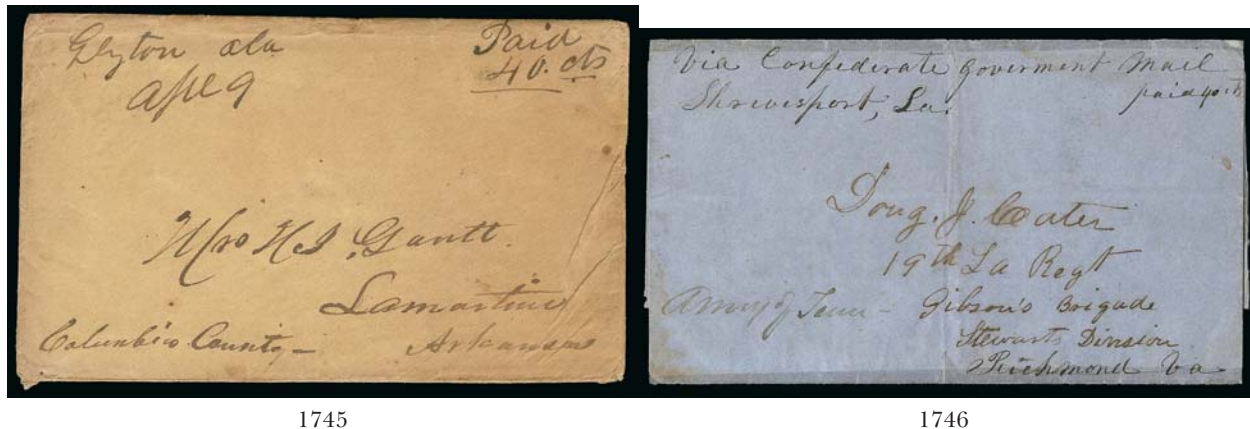 Elyton Ala
Apl 9
Paid
40. cts
Mrs H S Gantt.
Lamartine
Columbia County –
Arkansas
1745
Via Confederate goverment Mail
Shrevesport, La.
paid 40 cts
Doug. J. Cater
19th La Regt
Army of Tenn – Gibson's Brigade
Stewarts Division
Richmond Va
1746